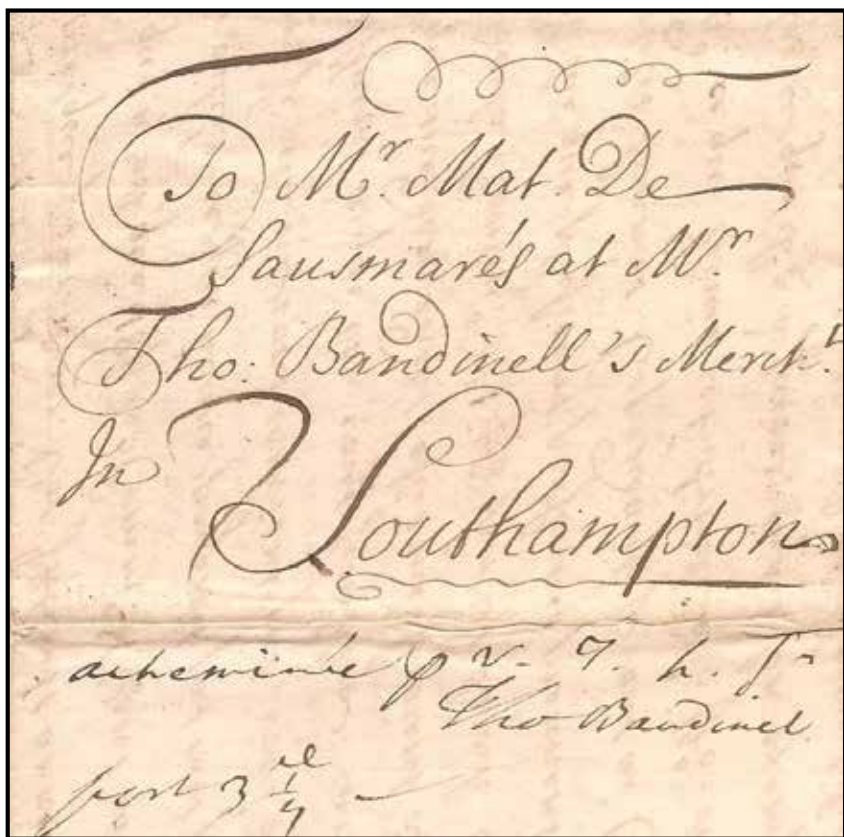 To Mr. Mat. De
Sausmarés at Mr.
Tho: Bandinell's Mercht.
In
Southampton
acheminée p v. T. h. Sr
Tho Bandinel
port 3